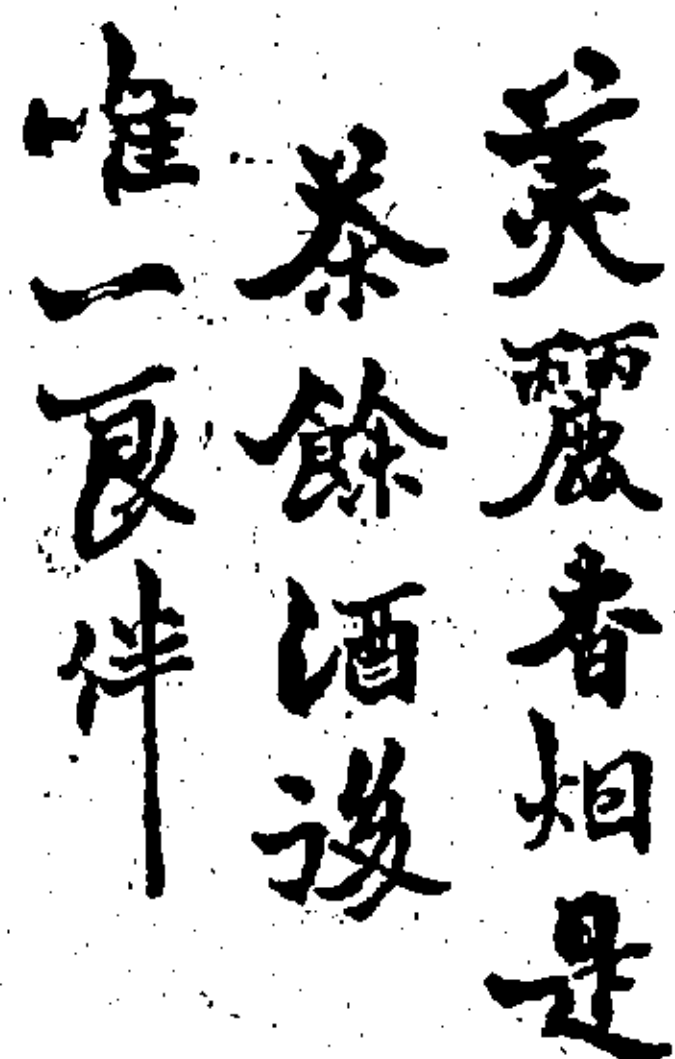 美麗香烟是
茶餘酒後
唯一良伴